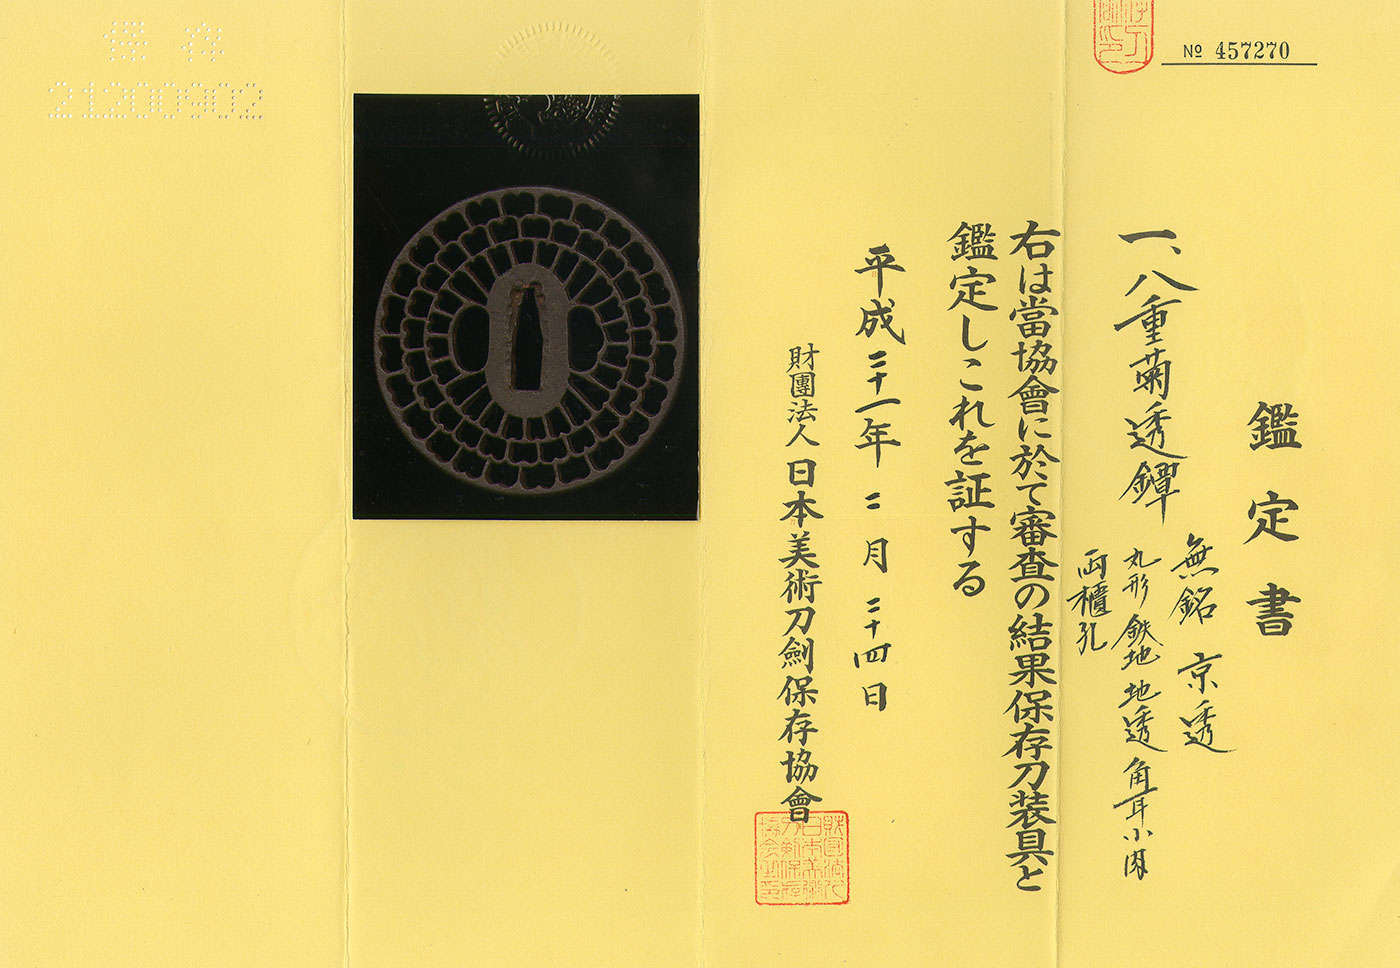 № 457270
鑑定書
一、八重菊透鐔
無銘 京透
丸形 鉄地 地透 角耳小肉
両櫃孔
右は當協會に於て審査の結果保存刀装具と
鑑定しこれを証する
平成二十一年二月二十四日
財團法人日本美術刀劍保存協會
保存
21200902